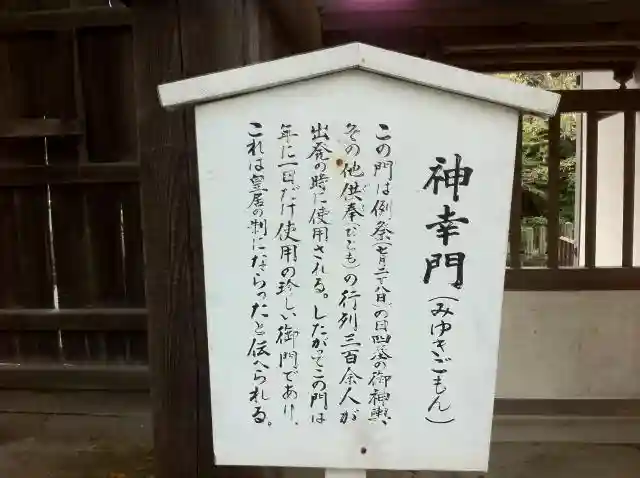 神幸門(みゆきごもん)
この門は例祭(七月二十八日)の日四基の御神輿、
その他供奉(ぐぶとも)の行列三百余人が
出発の時に使用される。したがってこの門は
年に一日だけ使用の珍しい御門であり、
これは皇居の制にならったと伝へられる。